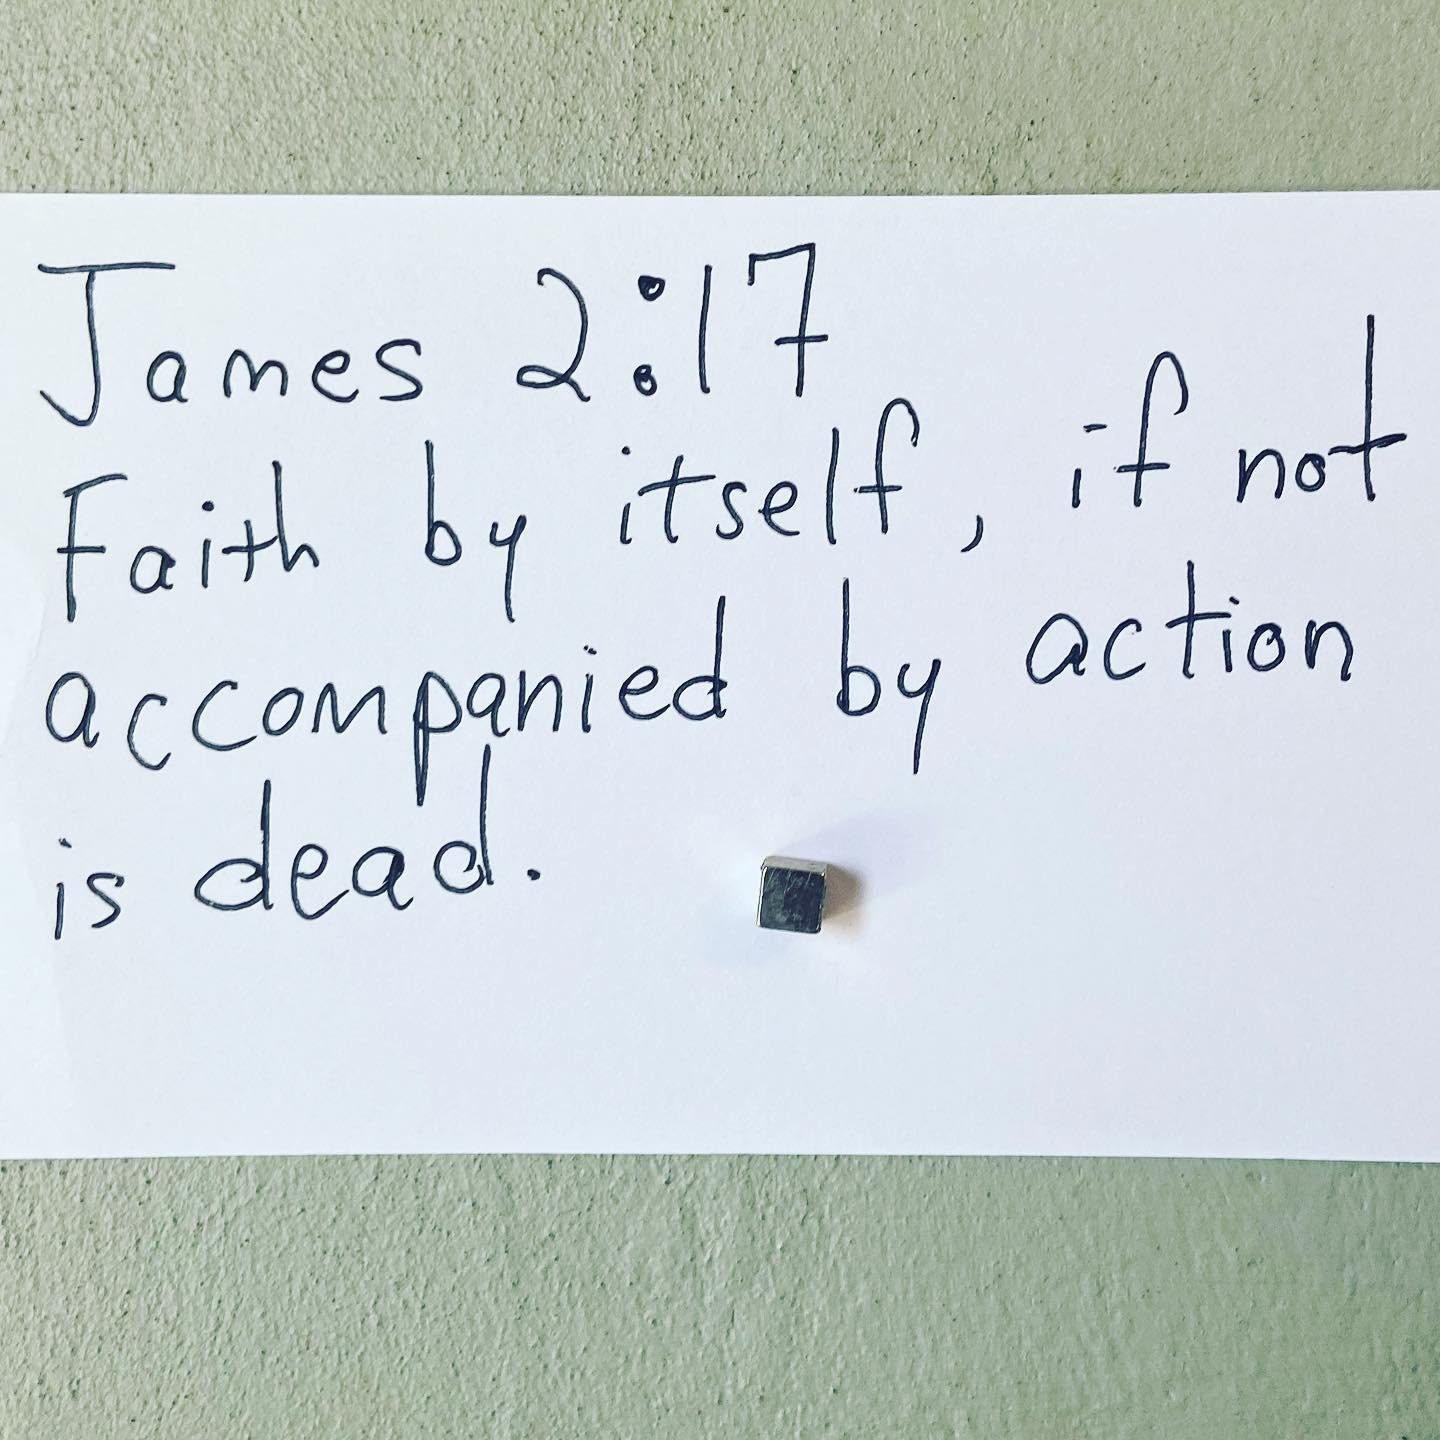 James 2:17
Faith by itself, if not
accompanied by action
is dead.